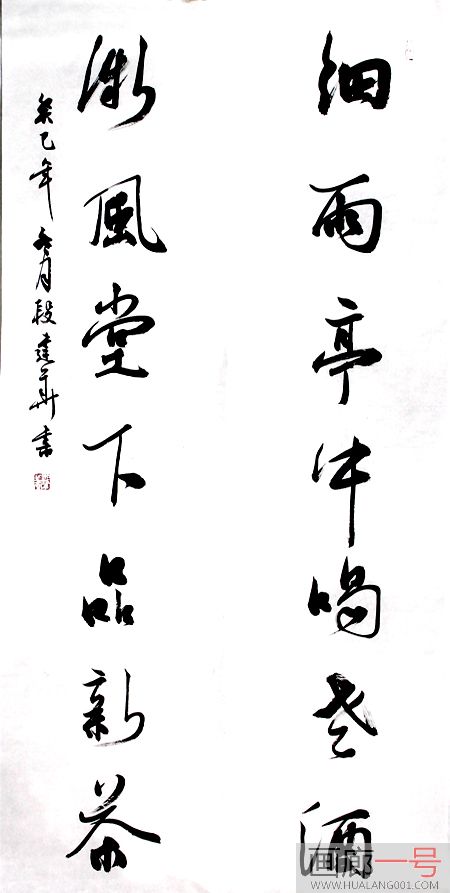 細雨亭中喝老酒
微風堂下品新茶
癸巳年冬月段建华書
画廊一号
WWW.HUALANG001.COM